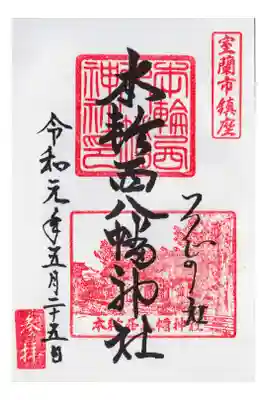 室蘭市鎮座
つつじの社
本輪西八幡神社
本輪西
神社印
本輪西八幡神社
令和元年五月二十五日
参拝